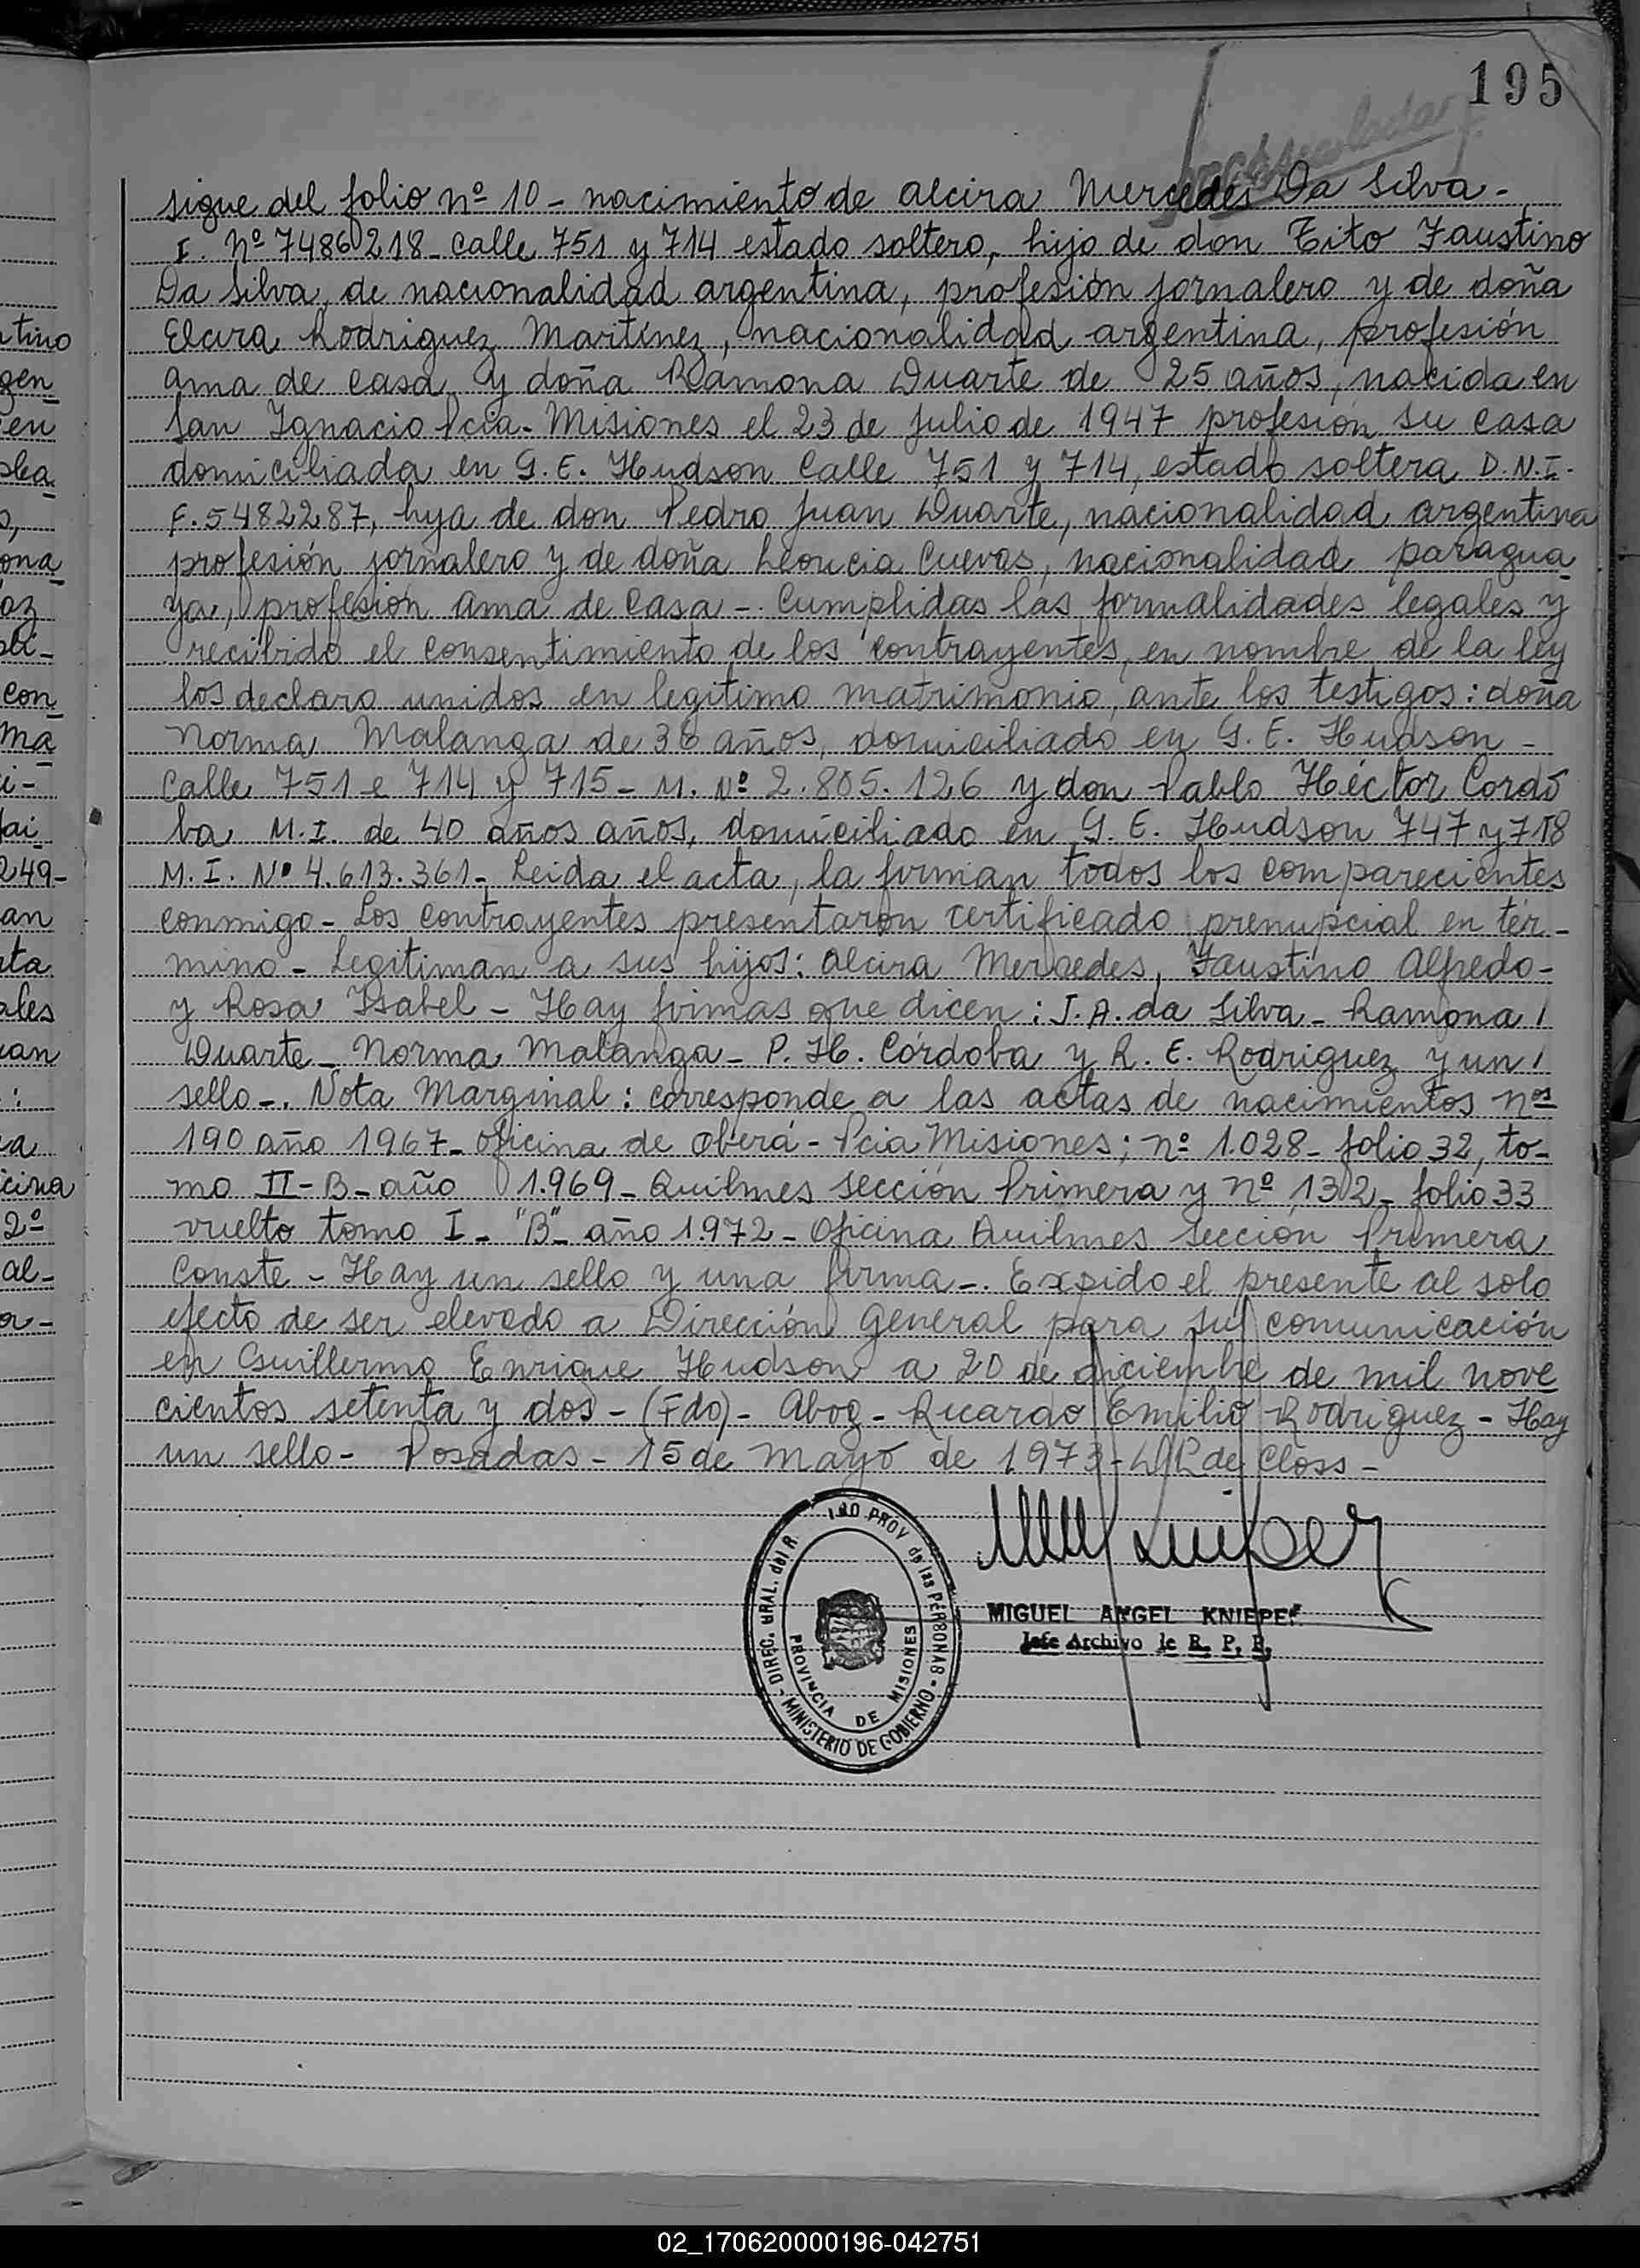 195
sigue del folio nº 10 - nacimiento de alcira Mercedes Da Silva -
I. Nº 7486218 - calle 751 y 714 estado soltero, hijo de don Tito Faustino
Da Silva, de nacionalidad argentina, profesión jornalero y de doña
Elcira Rodriguez Martínez, nacionalidad argentina, profesión
ama de casa y doña Ramona Duarte de 25 años, nacida en
San Ignacio Pcia. Misiones el 23 de julio de 1947 profesión su casa
domiciliada en G. E. Hudson Calle 751 y 714, estado soltera D.N.I.
F. 5482287, hija de don Pedro Juan Duarte, nacionalidad argentina
profesión jornalero y de doña Leoncia Cuevas, nacionalidad paragua
ya, profesión ama de casa -. Cumplidas las formalidades legales y
recibido el consentimiento de los contrayentes, en nombre de la ley
los declaro unidos en legítimo matrimonio, ante los testigos: doña
Norma Malanga de 36 años, domiciliado en G. E. Hudson -
Calle 751 e 714 y 715 - M. Nº 2.805.126 y don Pablo Héctor Cordo
ba M.I. de 40 años años, domiciliado en G. E. Hudson 747 y 718
M. I. Nº 4.613.361 - Leida el acta, la firman todos los comparecientes
conmigo - Los contrayentes presentaron certificado prenupcial en tér-
mino - Legitiman a sus hijos: alcira Mercedes, Faustino Alfredo -
y Rosa Isabel - Hay firmas que dicen: J. A. da Silva - Ramona /
Duarte - Norma Malanga - P. H. Córdoba y R. E. Rodriguez y un /
sello -. Nota Marginal: corresponde a las actas de nacimientos nos
190 año 1967 - oficina de oberá - Pcia Misiones; nº 1.028 - folio 32, to-
mo II - B - año 1.969 - Quilmes sección Primera y nº 132 - folio 33
vuelto tomo I - "B" - año 1.972 - Oficina Quilmes sección Primera
Conste - Hay un sello y una firma -. Expido el presente al solo
efecto de ser elevado a Dirección General para su comunicación
en Guillermo Enrique Hudson a 20 de diciembre de mil nove
cientos setenta y dos - (Fdo) - Abog - Ricardo Emilio Rodriguez - Hay
un sello - Posadas - 15 de Mayo de 1973 - de Closs -
DIREC. GRAL. del R. PROV de las PERSONAS - MINISTERIO DE GOBIERNO -
PROVINCIA DE MISIONES
MIGUEL ANGEL KNIEPER
Jefe Archivo de R. P. P.
tino
gen
en
ona
az
con
ma
i-
249-
an
ta
ales
:
a
cina
2º
al-
02_170620000196-042751